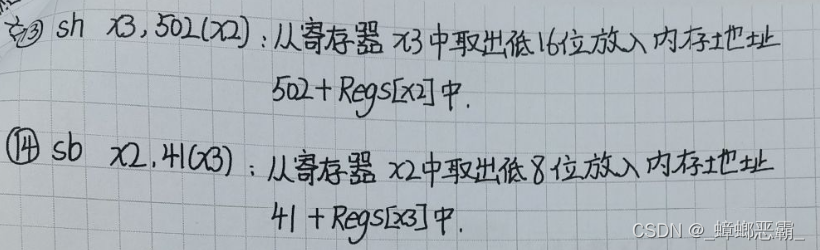 ⑬ sh x3, 502(x2) : 从寄存器 x3中取出低16位放入内存地址
502 + Regs[x2]中.
⑭ sb x2, 41(x3) : 从寄存器 x2中取出低8位放入内存地址
41 + Regs[x3]中.
CSDN @_蟑螂恶霸_